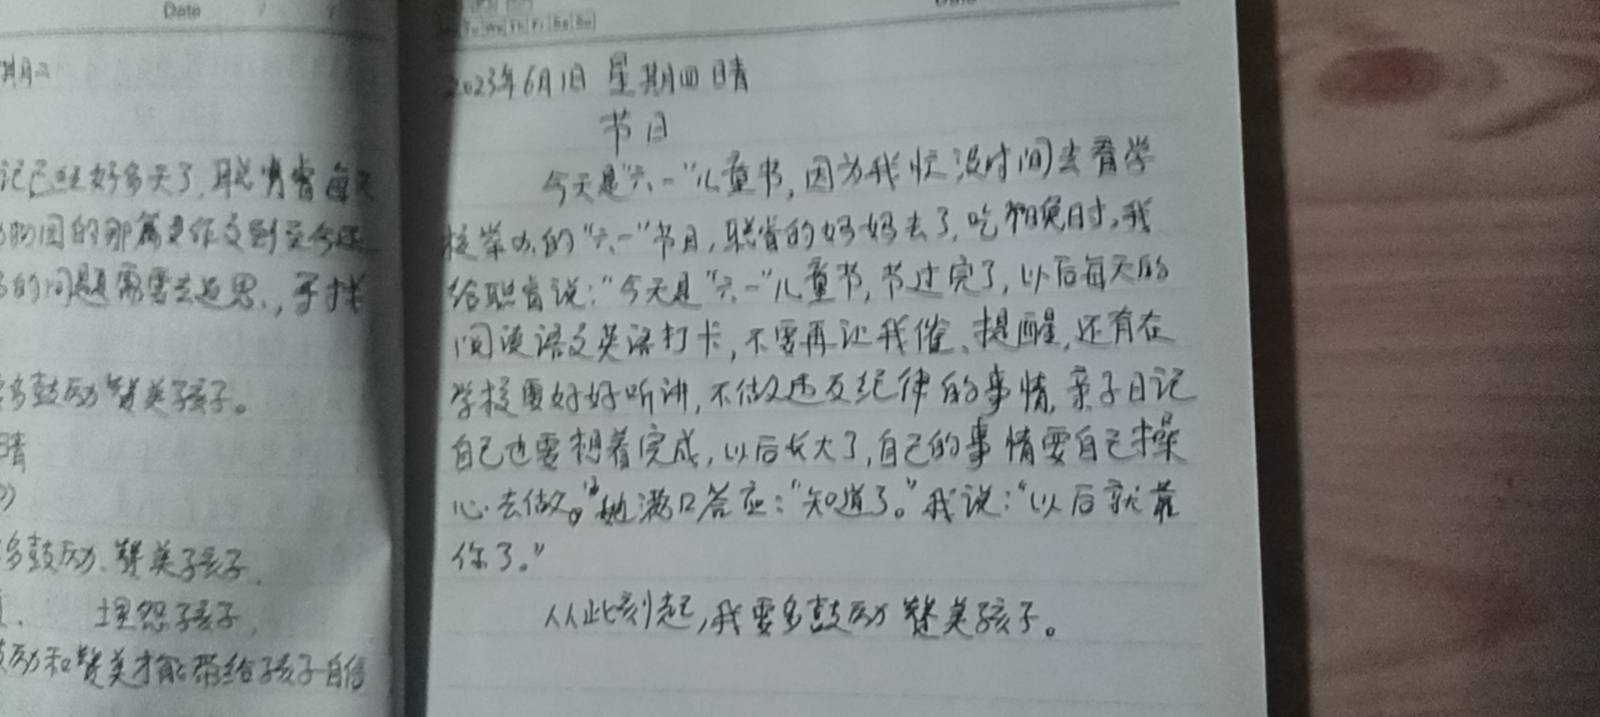 Date
期二
记已经好多天了,聪肯每天
物园的那篇
的问题需要去
多鼓励赞美孩子。
晴
多鼓励、赞美孩子,
埋怨孩子,
鼓励和赞美才能带给孩子自信
Tu We Th Fr Sa Su
2023年6月1日 星期四 晴
节日
今天是"六一"儿童节,因为我忙没时间去看学
校举办的"六一"节目,聪肯的妈妈去了,吃晚时,我
给聪肯说:"今天是"六一"儿童节,节过完了,以后每天的
阅读语文英语打卡,不要再让我催、提醒,还有在
学校要好好听讲,不做违反纪律的事情,亲子日记
自己也要想着完成,以后长大了,自己的事情要自己操
心去做。"她满口答应:"知道了。"我说:"以后就靠
你了。"
从此刻起,我要多鼓励赞美孩子。